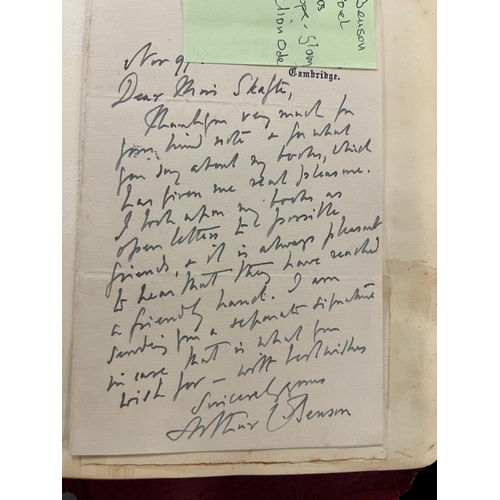 Benson
Nov 9,
Cambridge.
Dear Miss
Thank you very much for
your kind note & for what
you say about my books, which
has given me real pleasure.
I look upon my books as
open letters to possible
friends, & it is always pleasant
to hear that they have reached
a friendly hand. I am
sending you a separate signature
in case that is what you
wish for – with best wishes
Sincerely yours
Arthur C. Benson